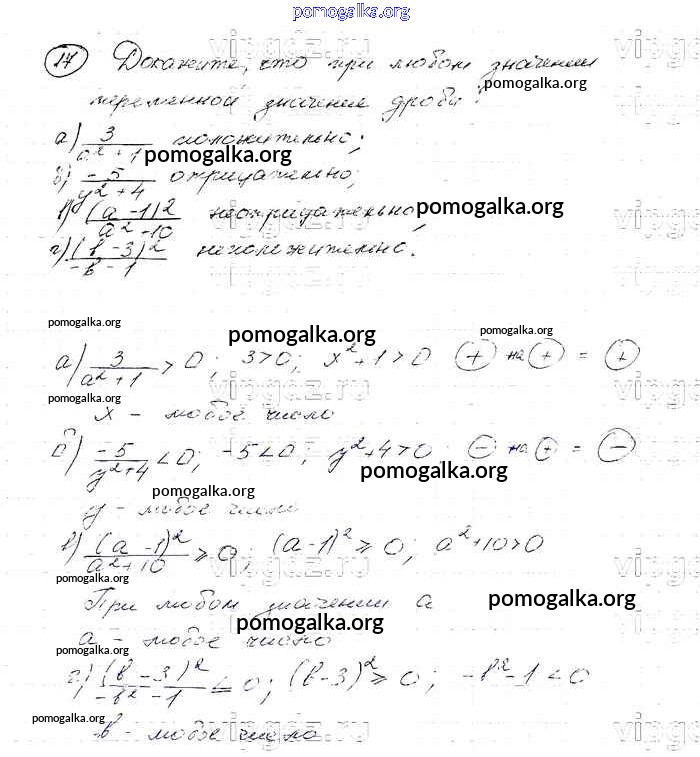 pomogalka.org
17 Докажите, что при любом значении
pomogalka.org
переменной значение дроби:
а) 3/(a²+1) положительно;
pomogalka.org
б) -5/(y²+4) отрицательно;
в) (a-1)²/(a²+10) неотрицательно;
pomogalka.org
г) (b-3)²/(-b-1) неположительно.
pomogalka.org pomogalka.org pomogalka.org
а) 3/(a²+1) > 0; 3>0; x²+1>0 (+) на (+) = (+)
x - любое число
б) -5/(y²+4) < 0; -5<0; y²+4>0 (-) на (+) = (-)
pomogalka.org
pomogalka.org
y - любое число
в) (a-1)²/(a²+10) ⩾ 0; (a-1)² ⩾ 0; a²+10>0
pomogalka.org
При любом значении a
pomogalka.org
pomogalka.org
a - любое число
pomogalka.org
г) (b-3)²/(-b²-1) ≤ 0; (b-3)² ⩾ 0; -b²-1<0
pomogalka.org
b - любое число
vipgdz.ru